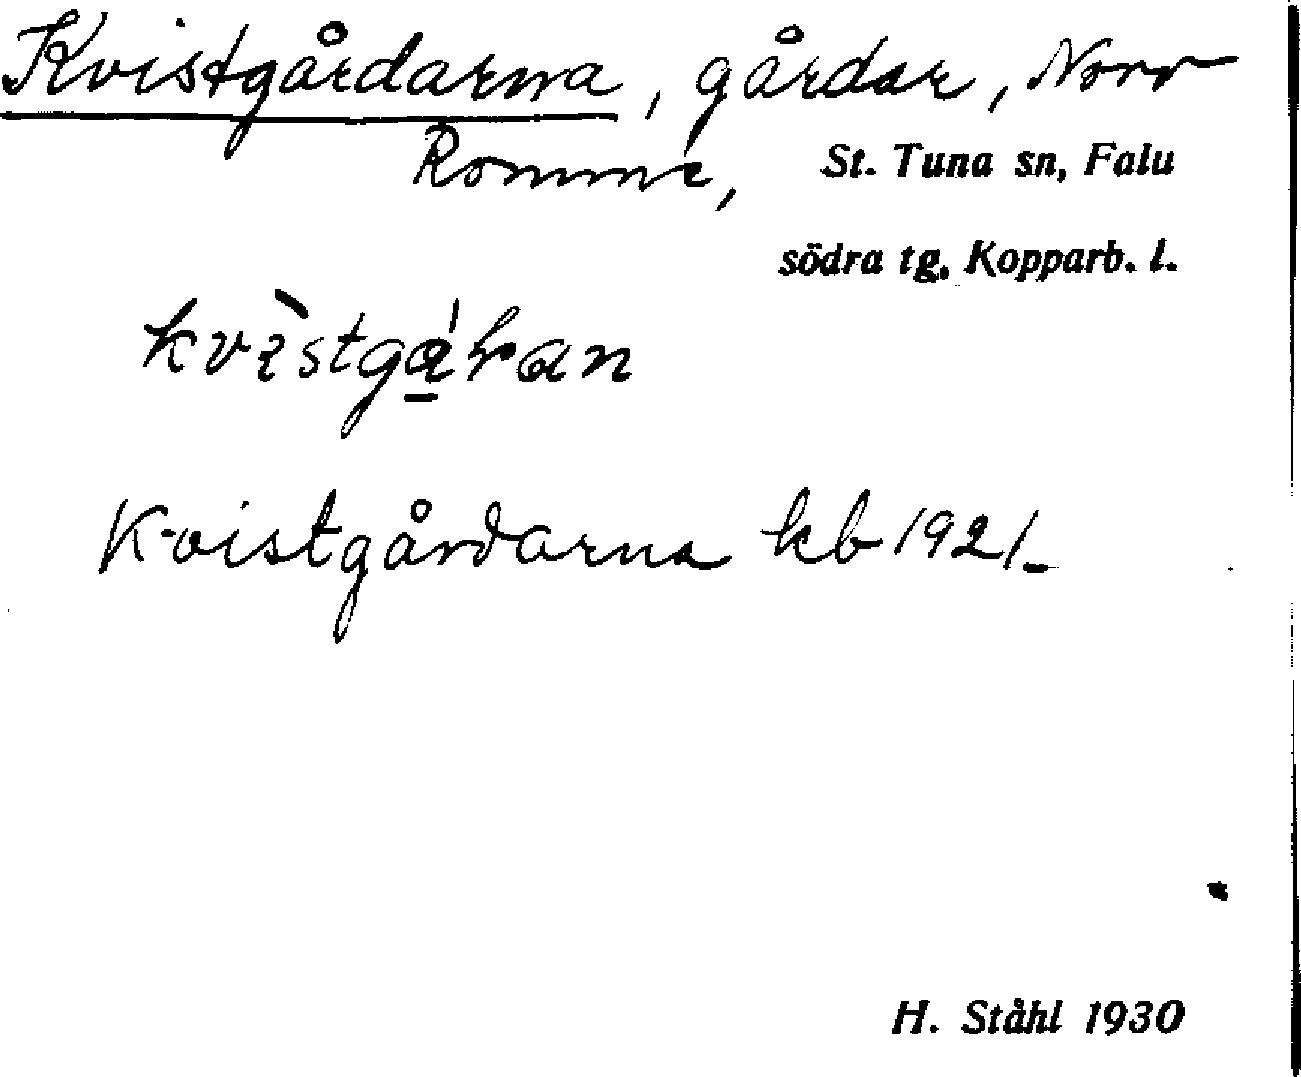 Kvistgårdarna, gårdar, Norr
Romme, St. Tuna sn, Falu
södra tg, Kopparb. l.
Kvistgårdarna kb 1921
H. Ståhl 1930